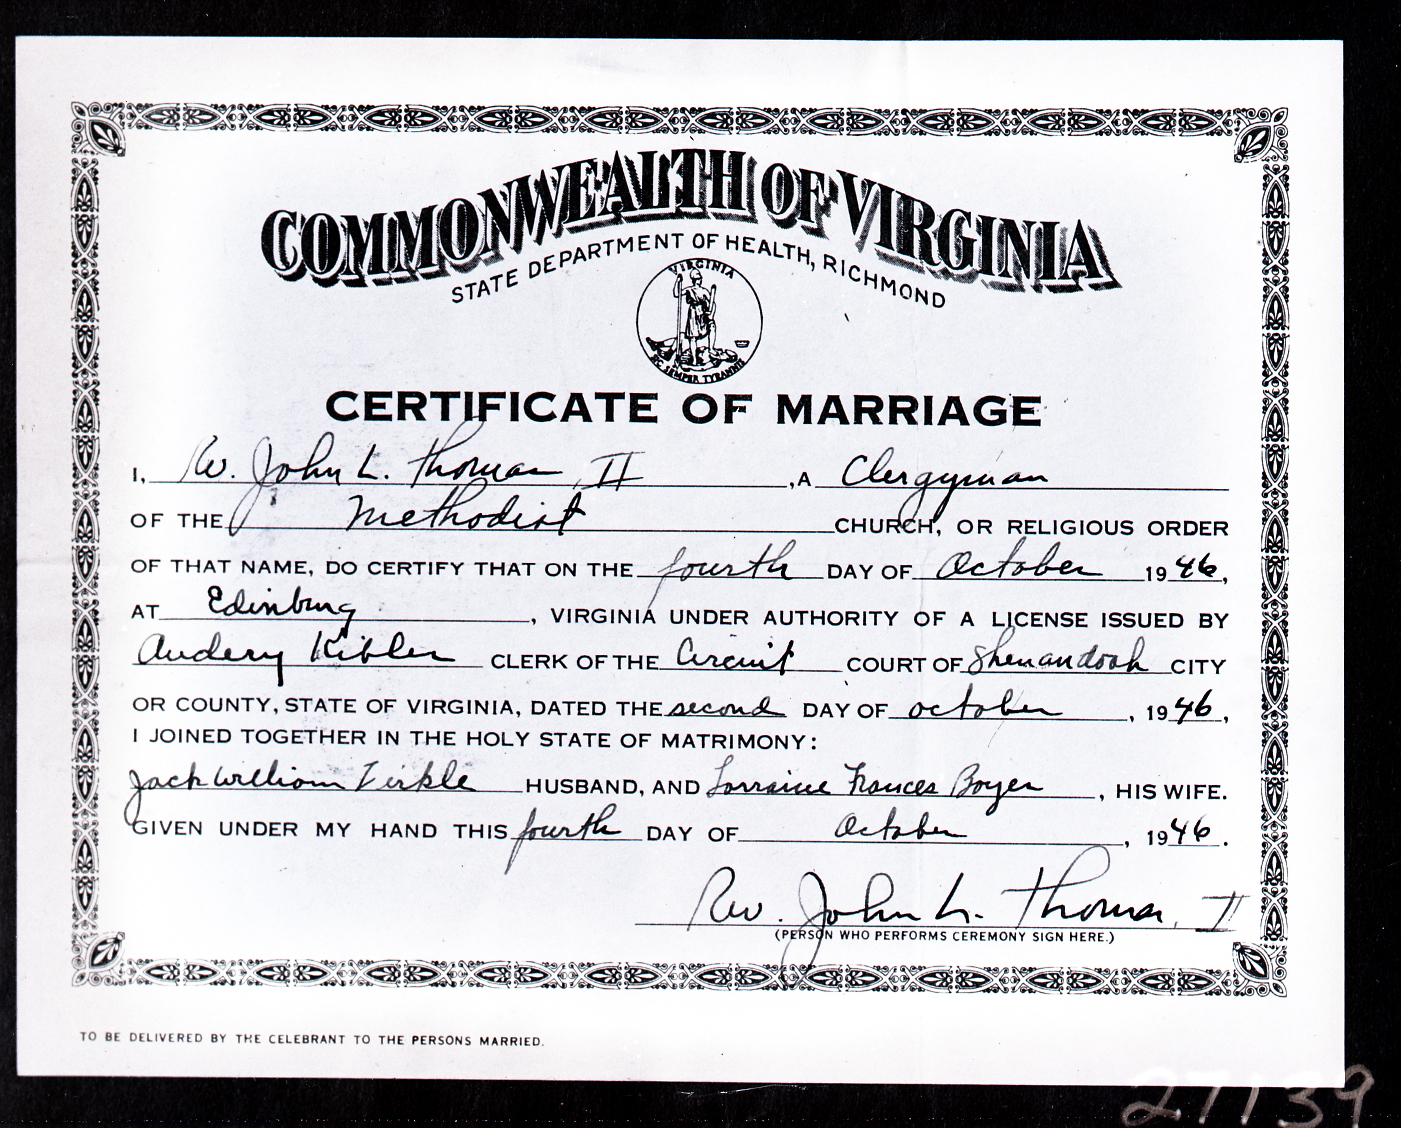 COMMONWEALTH OF VIRGINIA
STATE DEPARTMENT OF HEALTH, RICHMOND
VIRGINIA
SIC SEMPER TYRANNIS
CERTIFICATE OF MARRIAGE
I, Rev. John L. Thomas, II, A Clergyman
OF THE Methodist CHURCH, OR RELIGIOUS ORDER
OF THAT NAME, DO CERTIFY THAT ON THE fourth DAY OF October 1946,
AT Edinburg, VIRGINIA UNDER AUTHORITY OF A LICENSE ISSUED BY
Audery Kibler CLERK OF THE Circuit COURT OF Shenandoah CITY
OR COUNTY, STATE OF VIRGINIA, DATED THE second DAY OF october, 1946,
I JOINED TOGETHER IN THE HOLY STATE OF MATRIMONY:
Jack William HUSBAND, AND Lorraine Frances Boyer, HIS WIFE.
GIVEN UNDER MY HAND THIS fourth DAY OF October, 1946.
Rev. John L. Thomas, II
(PERSON WHO PERFORMS CEREMONY SIGN HERE.)
TO BE DELIVERED BY THE CELEBRANT TO THE PERSONS MARRIED.
27139